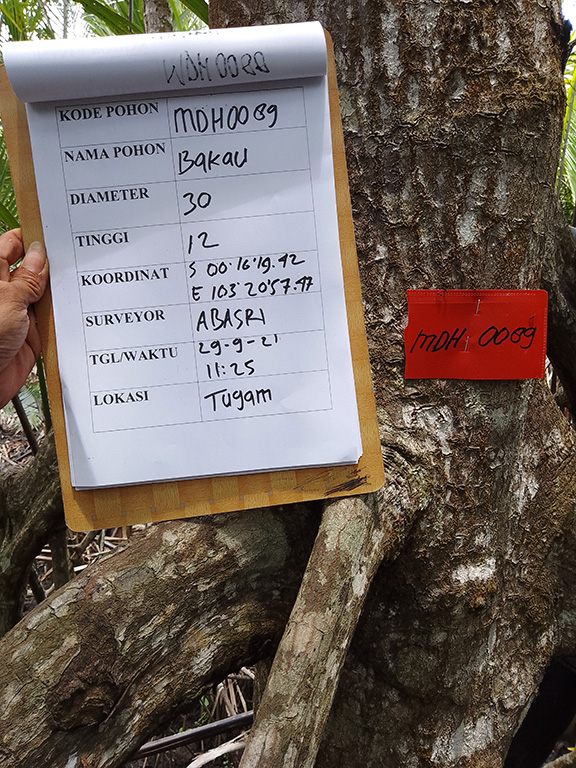 WDH 0088
KODE POHON MDH0089
NAMA POHON Bakau
DIAMETER 30
TINGGI 12
KOORDINAT S 00°16'19.42
E 103°20'57.47
SURVEYOR ABASRI
TGL/WAKTU 29-9-21
11:25
LOKASI Tugam
MDH 0089